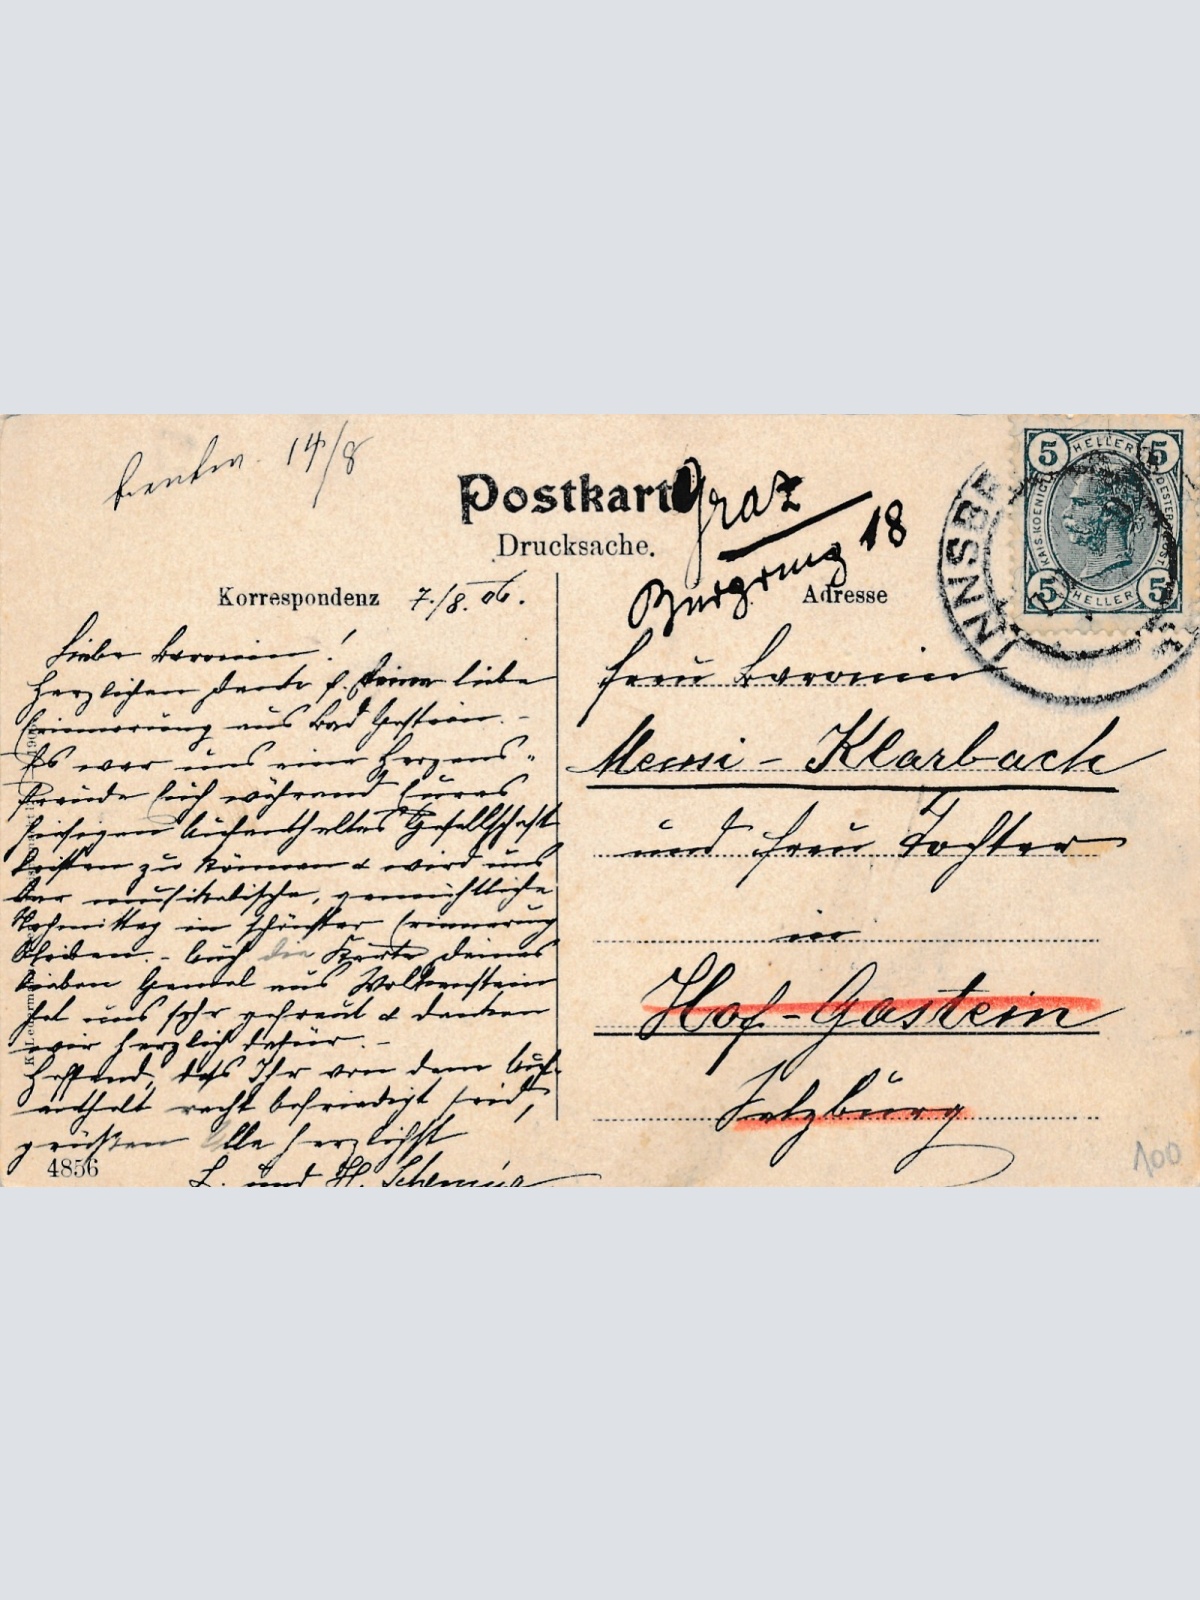 14/8
Postkarte
Graz
Drucksache.
Burgring 18
Korrespondenz 7./8. 06.
Adresse
Liebe Baronin!
Herzlichen Dank f. Deine liebe
Erinnerung aus Bad Gastein. –
Es war uns eine Herzens-
freude Euch während Eures
hiesigen Aufenthaltes Gesellschaft
leisten zu können & wird uns
der musikalische, gemüthliche
Nachmittag in schönster Erinnerung
bleiben. – Auch die Karte Deines
lieben Gemal aus Wolkenstein
hat uns sehr gefreut & danken
wir herzlich dafür. –
Hoffend, daß Ihr von dem Auf-
enthalt recht befriedigt seid,
grüßen Alle herzlichst
L. und H.
4856
Frau Baronin
Mensi - Klarbach
und Frau Tochter
in
Hof-Gastein
Salzburg
100
5 HELLER 5
KAIS. KOENIGL. OESTERR. POST
5 HELLER 5
INNSBR